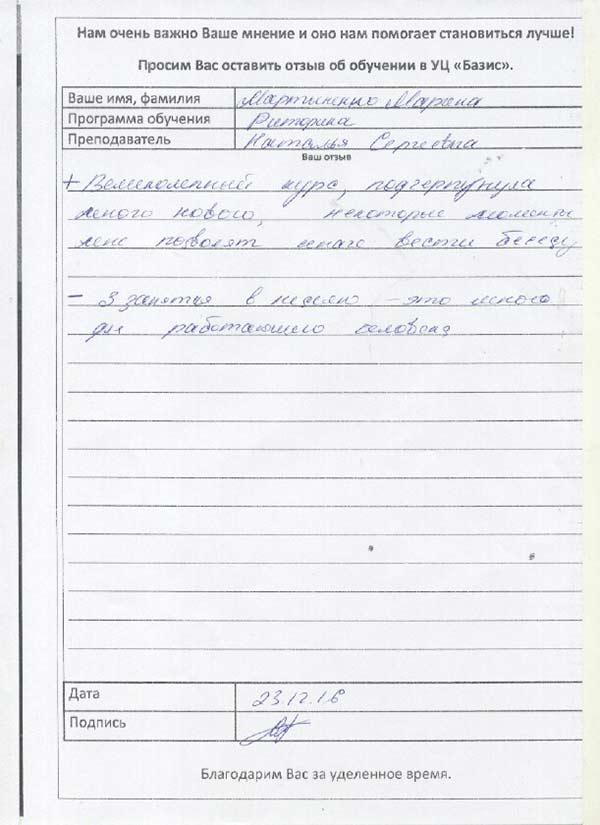 Нам очень важно Ваше мнение и оно нам помогает становиться лучше!
Просим Вас оставить отзыв об обучении в УЦ «Базис».
Ваше имя, фамилия Мартыненко Марина
Программа обучения Риторика
Преподаватель Наталья Сергеевна
Ваш отзыв
+ Великолепный курс, подчерпнула
много нового, некоторые моменты
мне позволят вести беседу
- 3 занятия в неделю - это много
для работающего человека
Дата 23.12.16
Подпись
Благодарим Вас за уделенное время.